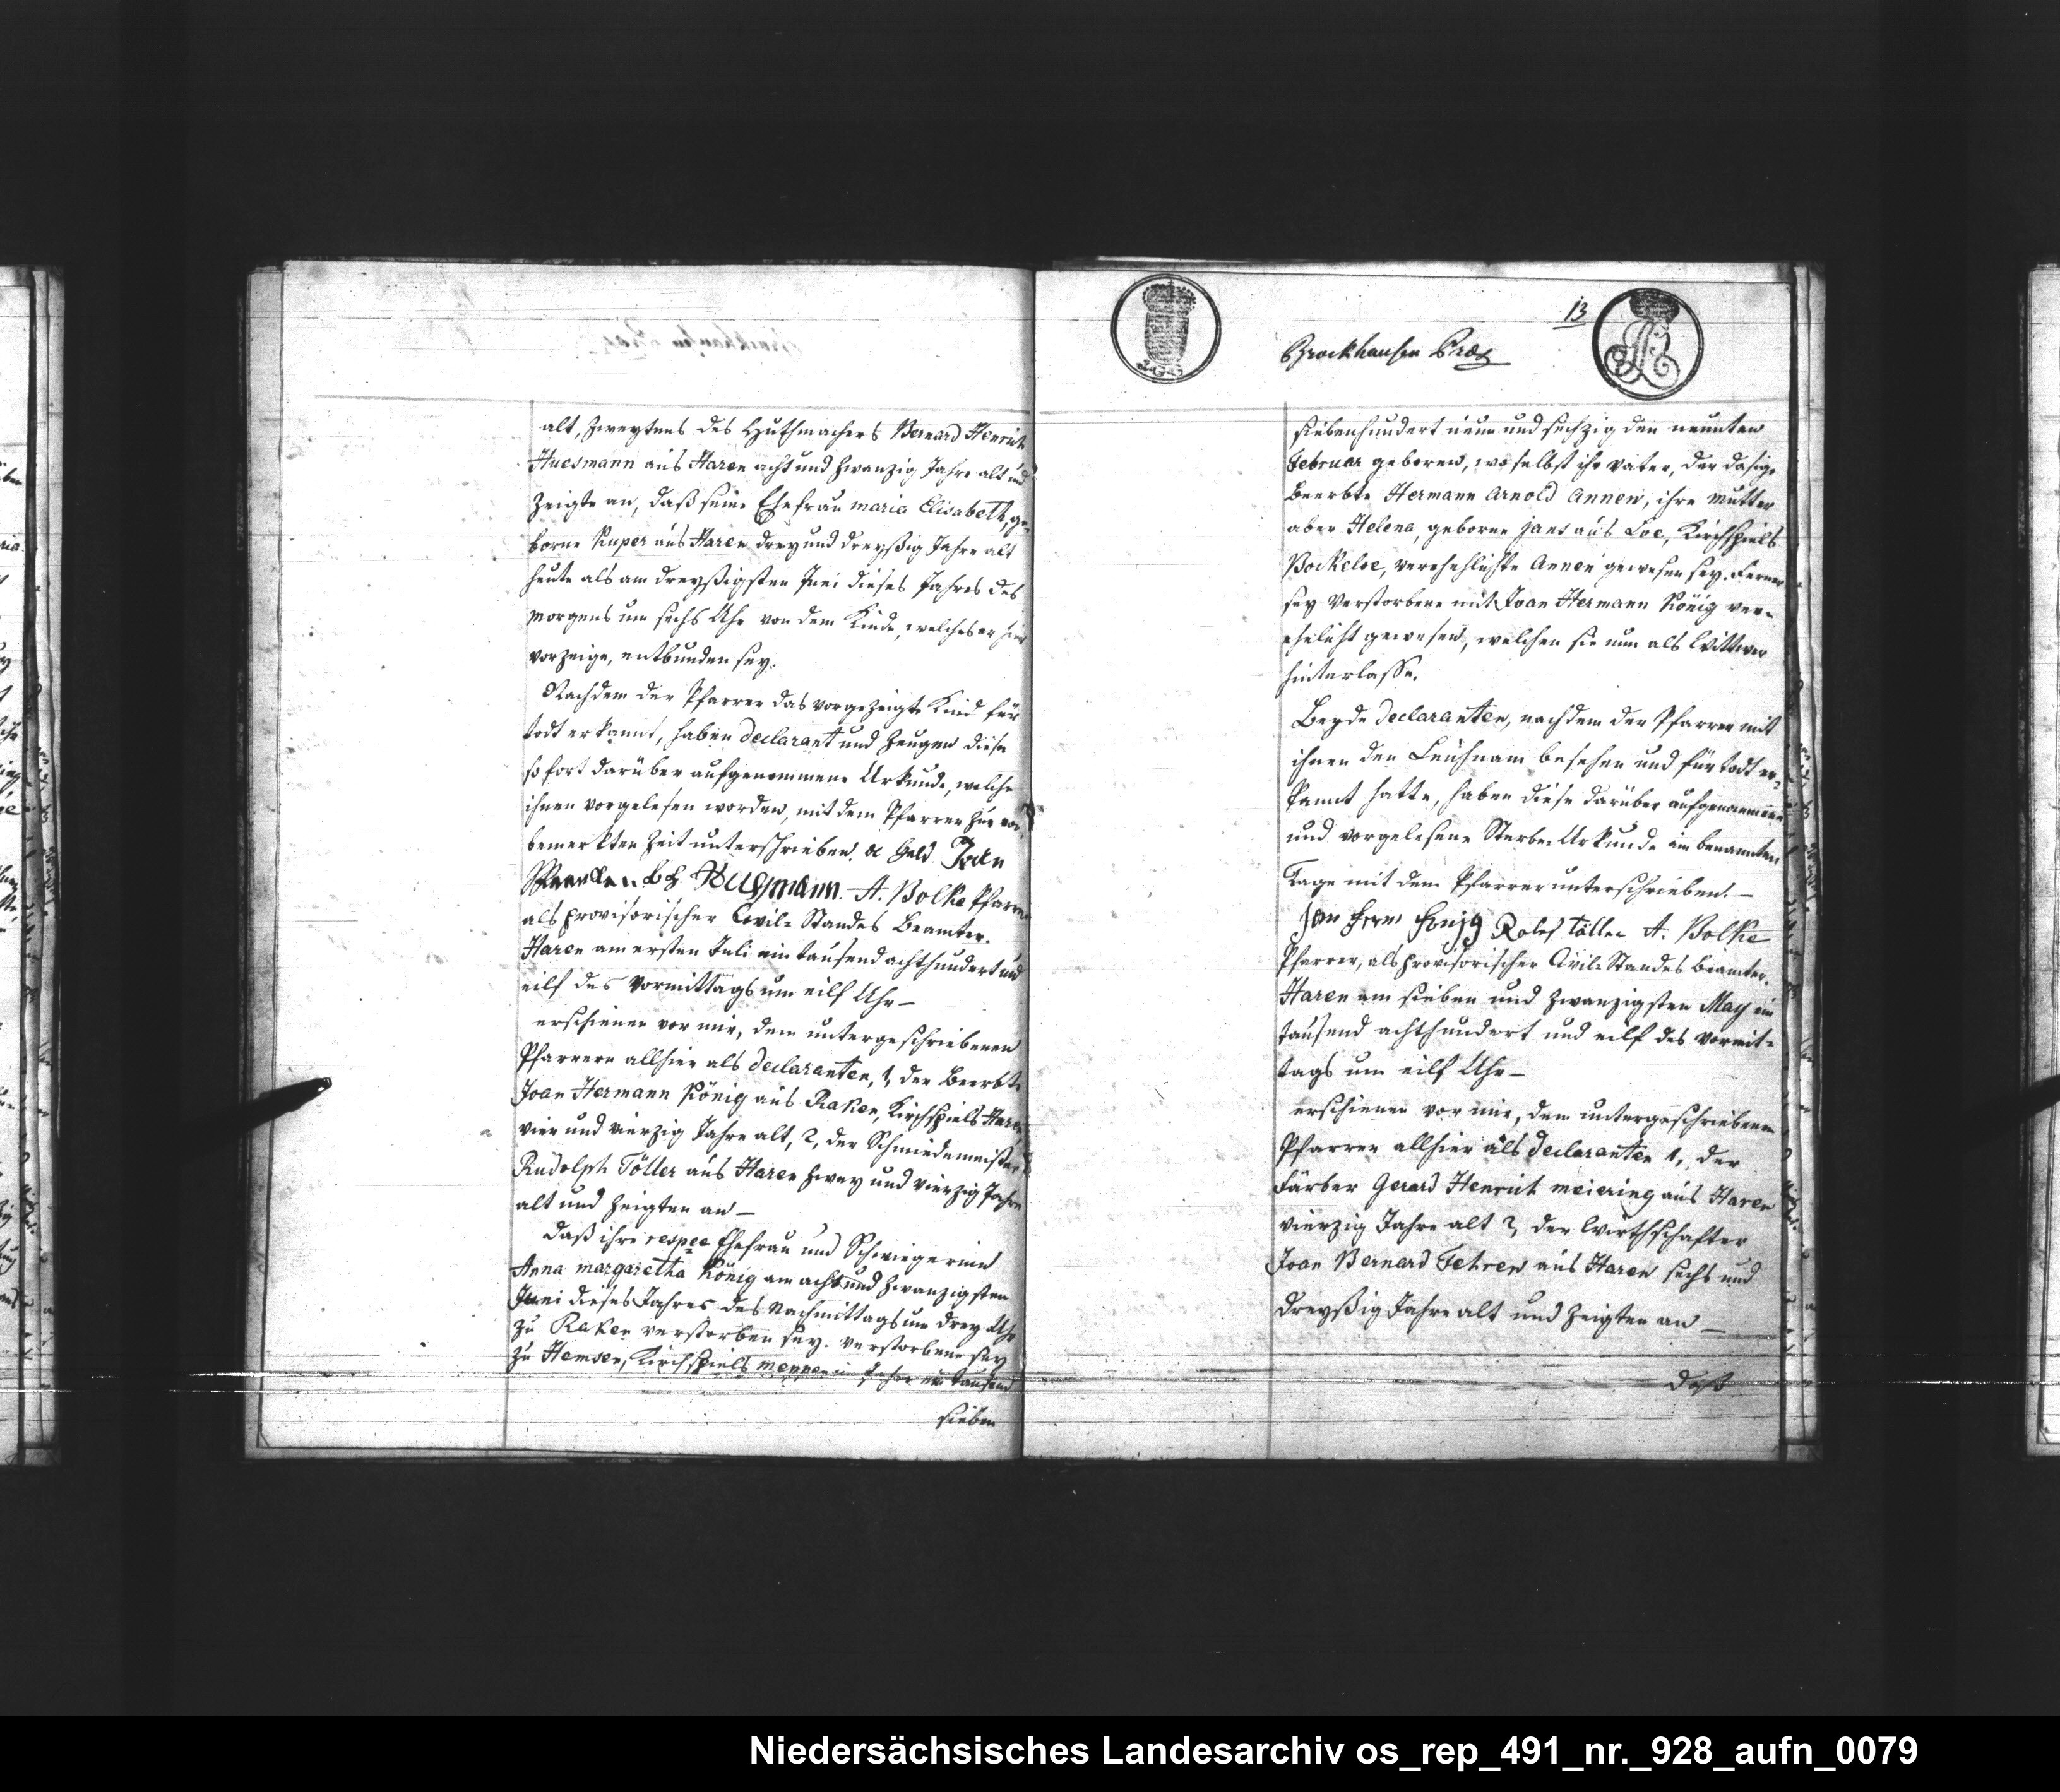 alt, zweytens des Huthmachers Bernard Henrich
Huesmann aus Haren acht und zwanzig Jahre alt und
zeigte an, daß seine Ehefrau maria Elisabeth, ge-
borne Kuper aus Haren drey und dreyßig Jahre alt
heute als am dreyßigsten Juni dieses Jahres des
morgens um sechs Uhr von dem Kinde, welches er hier
vorzeige, entbunden sey.
Nachdem der Pfarrer das vorgezeigte Kind für
todt erkannt, haben declarant und Zeugen diese
sofort darüber aufgenommene Urkunde, welche
ihnen vorgelesen worden, mit dem Pfarrer zur vor-
bemerkten Zeit unterschrieben.
BH Huesmann. A. Bolke Pfarrer
als provisorischer Civil-Standes Beamter.
Haren am ersten Juli ein tausend achthundert und
eilf des Vormittags um eilf Uhr –
erschienen vor mir, dem untergeschriebenen
Pfarrern allhier als declaranten, 1, der Beerbte
Joan Hermann König aus Raken, Kirchspiels Haren
vier und vierzig Jahre alt, 2, der Schmiedemeister
Rudolph Töller aus Haren zwey und vierzig Jahre
alt und zeigten an –
daß ihre respee Ehefrau und Schwiegerinn
Anna margaretha König am acht und zwanzigsten
Juni dieses Jahres des Nachmittags um drey Uhr
zu Raken verstorben sey. verstorbene sey
zu Hemsen, Kirchspiels meppen im Jahre ein tausend
sieben
13
Brockhausen Präs
siebenhundert neun und sechzig den neunten
Februar geboren, woselbst ihr Vater, der dasige
Beerbte Hermann Arnold Annen, ihre Mutter
aber Helena, geborne Jans aus Loe, Kirchspiels
Bokeloe, verehelichte Annen gewesen sey. Ferner
sey Verstorbene mit Joan Hermann König ver-
ehelicht gewesen, welchen sie nun als Wittwer
hinterlasse.
Beyde declaranten, nachdem der Pfarrer mit
ihnen den Leichnam besehen und für todt er-
kannt hatte, haben diese darüber aufgenommene
und vorgelesene Sterbe-Urkunde am benannten
Tage mit dem Pfarrer unterschrieben. –
Jan Herm König Rolef Töller A. Bolke
Pfarrer, als provisorischer Civil-Standes Beamter.
Haren am sieben und zwanzigsten May ein
tausend achthundert und eilf des vormit-
tags um eilf Uhr –
erschienen vor mir, dem untergeschriebenen
Pfarrer allhier als declaranten 1, der
Färber Gerard Henrich meiering aus Haren
vierzig Jahre alt 2, der Wirthschafter
Joan Bernard Fehren aus Haren sechs und
dreyßig Jahre alt und zeigten an –
daß
Niedersächsisches Landesarchiv os_rep_491_nr._928_aufn_0079